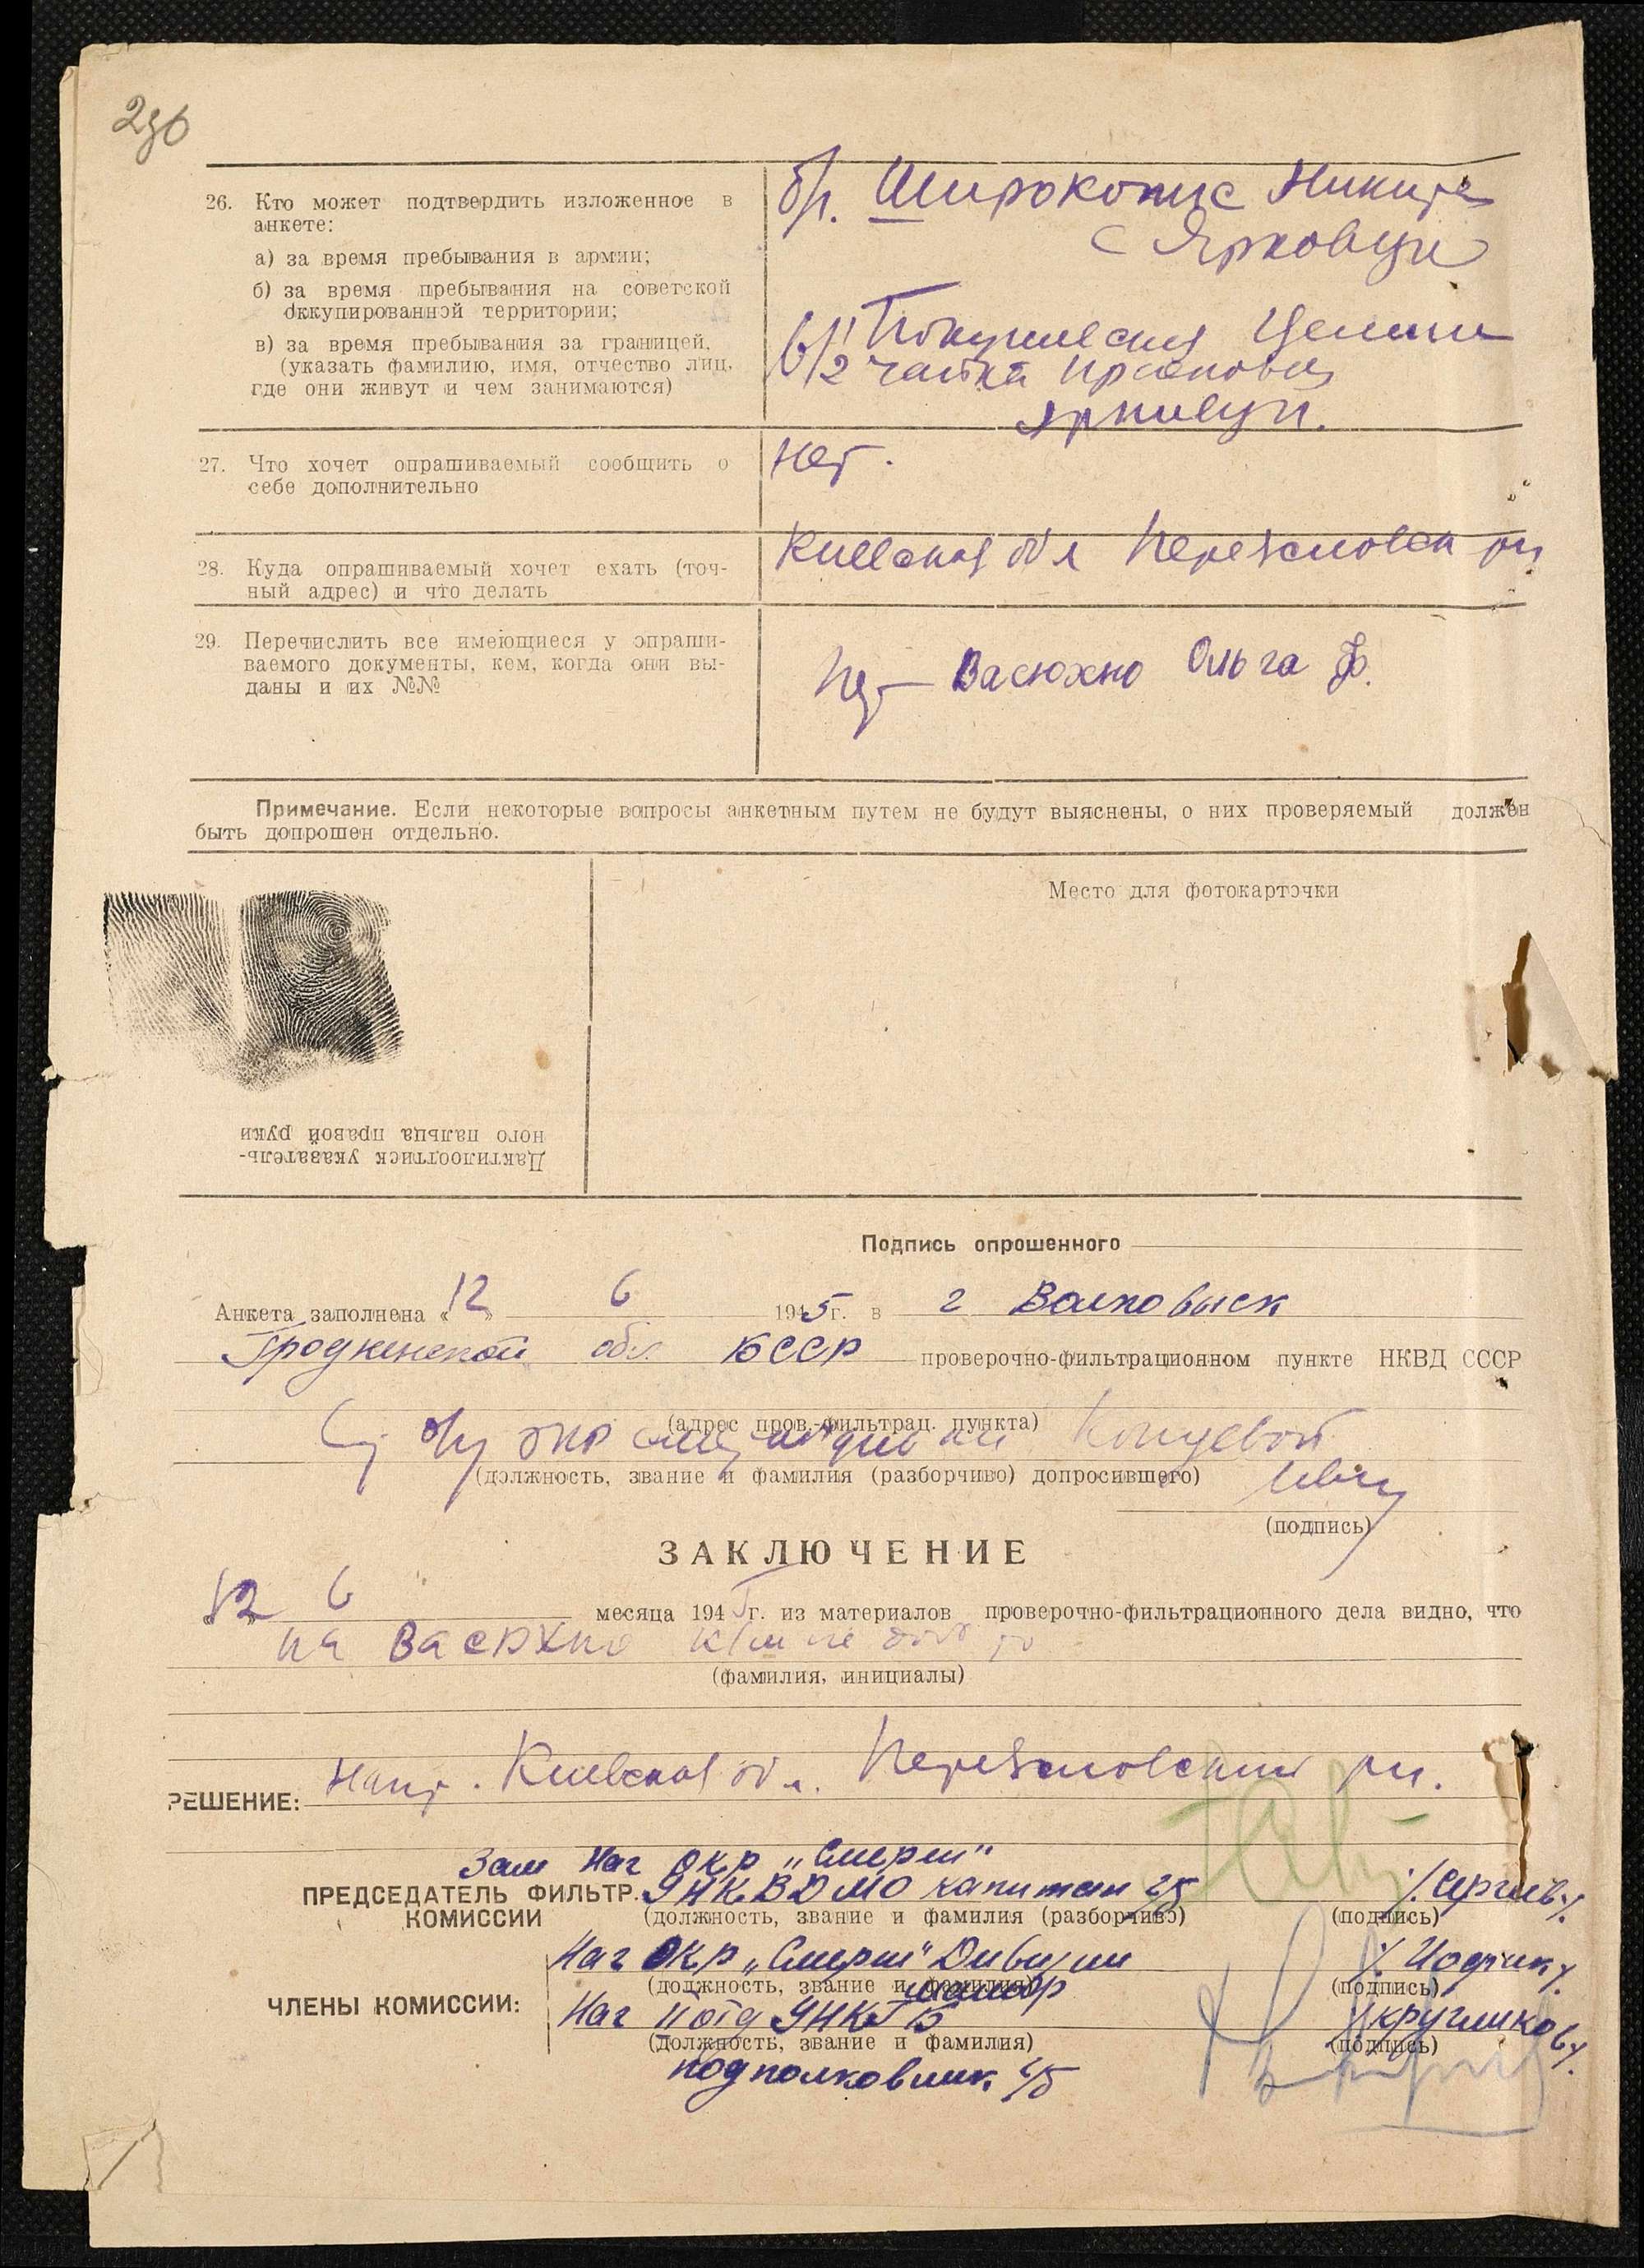 26. Кто может подтвердить изложенное в
анкете:
а) за время пребывания в армии;
б) за время пребывания на советской
оккупированной территории;
в) за время пребывания за границей.
(указать фамилию, имя, отчество лиц,
где они живут и чем занимаются)
Широкопис Никита
с Ярковци
27. Что хочет опрашиваемый сообщить о
себе дополнительно
Нет.
28. Куда опрашиваемый хочет ехать (точ-
ный адрес) и что делать
Киевская обл
29. Перечислить все имеющиеся у опраши-
ваемого документы, кем, когда они вы-
даны и их №№
Васюхно Ольга Ф.
Примечание. Если некоторые вопросы анкетным путем не будут выяснены, о них проверяемый должен
быть допрошен отдельно.
Место для фотокарточки
Дактилооттиск указатель-
ного пальца правой руки
Подпись опрошенного
Анкета заполнена «12» 6 1945г. в г Волковыск
Гродненской обл. БССР проверочно-фильтрационном пункте НКВД СССР
(адрес пров.-фильтрац. пункта)
(должность, звание и фамилия (разборчиво) допросившего)
(подпись)
ЗАКЛЮЧЕНИЕ
«12» 6 месяца 1945г. из материалов проверочно-фильтрационного дела видно, что
на Васюхно
(фамилия, инициалы)
РЕШЕНИЕ: Напр. Киевская обл. рн.
Зам Нач ОКР „Смерш"
ПРЕДСЕДАТЕЛЬ ФИЛЬТР. УНКВД МО капитан
КОМИССИИ
(должность, звание и фамилия (разборчиво)
(подпись)
Нач ОКР „Смерш" Дивизии
(должность, звание и фамилия)
майор
(подпись)
ЧЛЕНЫ КОМИССИИ:
Нач II отд УНКГБ
/кругликов/.
(должность, звание и фамилия)
(подпись)
подполковник г/б